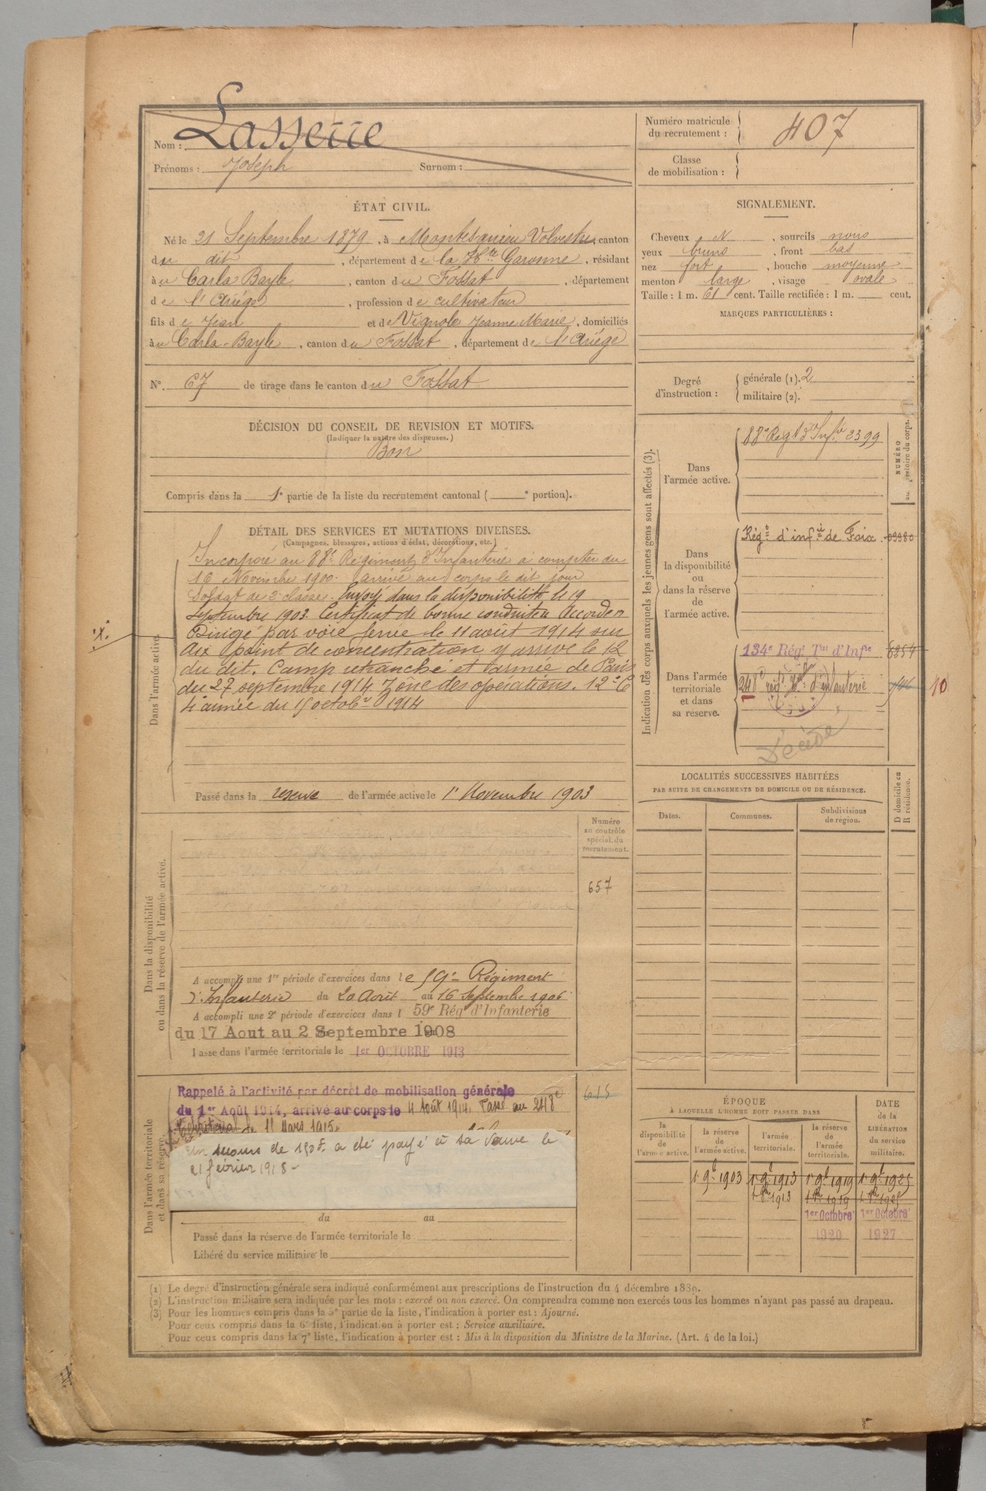 Nom : Lasserre
Prénoms : Joseph Surnom :
Numéro matricule du recrutement : 407
Classe de mobilisation :
ÉTAT CIVIL.
Né le 21 Septembre 1879, à Montesquieu Volvestre, canton
du dit, département de la Hte Garonne, résidant
à Carla Bayle, canton du Fossat, département
de l'Ariège, profession de cultivateur
fils de Jean et de Vignole Jeanne Marie, domiciliés
à Carla-Bayle, canton du Fossat, département de l'Ariège
N° 67 de tirage dans le canton du Fossat
SIGNALEMENT.
Cheveux N, sourcils noirs
yeux bruns, front bas
nez fort, bouche moyenne
menton large, visage ovale
Taille : 1 m. 61 cent. Taille rectifiée : 1 m. cent.
MARQUES PARTICULIÈRES :
Degré d'instruction :
générale (1). 2
militaire (2).
DÉCISION DU CONSEIL DE REVISION ET MOTIFS.
(Indiquer la nature des dispenses.)
Bon
Compris dans la 1e partie de la liste du recrutement cantonal ( e portion).
DÉTAIL DES SERVICES ET MUTATIONS DIVERSES.
(Campagnes, blessures, actions d'éclat, décorations, etc.)
Dans l'armée active.
Incorporé au 88e Régiment d'Infanterie à compter du
16 Novembre 1900. arrivé au corps le dit jour
Soldat de 2e classe. Envoyé dans la disponibilité le 19
Septembre 1903 Certificat de bonne conduite Accordé
Dirigé par voie ferrée le 11 août 1914 sur
point de concentration y arrive le 12
du dit. Camp retranché et armée de Paris
du 27 septembre 1914 Zône des opérations. 12e C
4 armée du 15 octobre 1914
Passé dans la réserve de l'armée active le 1er Novembre 1903
Indication des corps auxquels les jeunes gens sont affectés (3).
NUMÉRO
Dans l'armée active.
88e Régt d'Infrie 3399
Dans la disponibilité ou dans la réserve de l'armée active.
Régt d'infrie de Foix 09980
Dans l'armée territoriale et dans sa réserve.
134e Rég. Tal d'Infie 6354
248e régt d'infanterie
10
Décédé
LOCALITÉS SUCCESSIVES HABITÉES
PAR SUITE DE CHANGEMENTS DE DOMICILE OU DE RÉSIDENCE.
Dates. Communes. Subdivisions de région. D domicile ou R résidence.
Numéro au contrôle spécial du recrutement.
657
Dans la disponibilité ou dans la réserve de l'armée active.
A accompli une 1re période d'exercices dans le 59e Régiment
d'Infanterie du 20 Août au 16 Septembre 1906
A accompli une 2e période d'exercices dans l 59e Rég' d'Infanterie
du 17 Aout au 2 Septembre 1908
Passé dans l'armée territoriale le 1er OCTOBRE 1913
Dans l'armée territoriale et dans sa réserve.
Rappelé à l'activité par décret de mobilisation générale
du 1er Août 1914, arrivé au corps le 4 Août 1914. Passé au 248e
Territorial le 11 Mars 1915.
Un secours de 150F a été payé à sa veuve le
21 février 1918 -
615
du au
Passé dans la réserve de l'armée territoriale le
Libéré du service militaire le
ÉPOQUE
À LAQUELLE L'HOMME DOIT PASSER DANS
la disponibilité de l'armée active. la réserve de l'armée active. l'armée territoriale. la réserve de l'armée territoriale.
DATE de la LIBÉRATION du service militaire.
1er 9bre 1903 1er 9bre 1913 1er 9bre 1919 1er 9bre 1925
1er Octobre 1920 1er Octobre 1927
(1) Le degré d'instruction générale sera indiqué conformément aux prescriptions de l'instruction du 4 décembre 1889.
(2) L'instruction militaire sera indiquée par les mots : exercé ou non exercé. On comprendra comme non exercés tous les hommes n'ayant pas passé au drapeau.
(3) Pour les hommes compris dans la 5e partie de la liste, l'indication à porter est : Ajourné.
Pour ceux compris dans la 6e liste, l'indication à porter est : Service auxiliaire.
Pour ceux compris dans la 7e liste, l'indication à porter est : Mis à la disposition du Ministre de la Marine. (Art. 4 de la loi.)